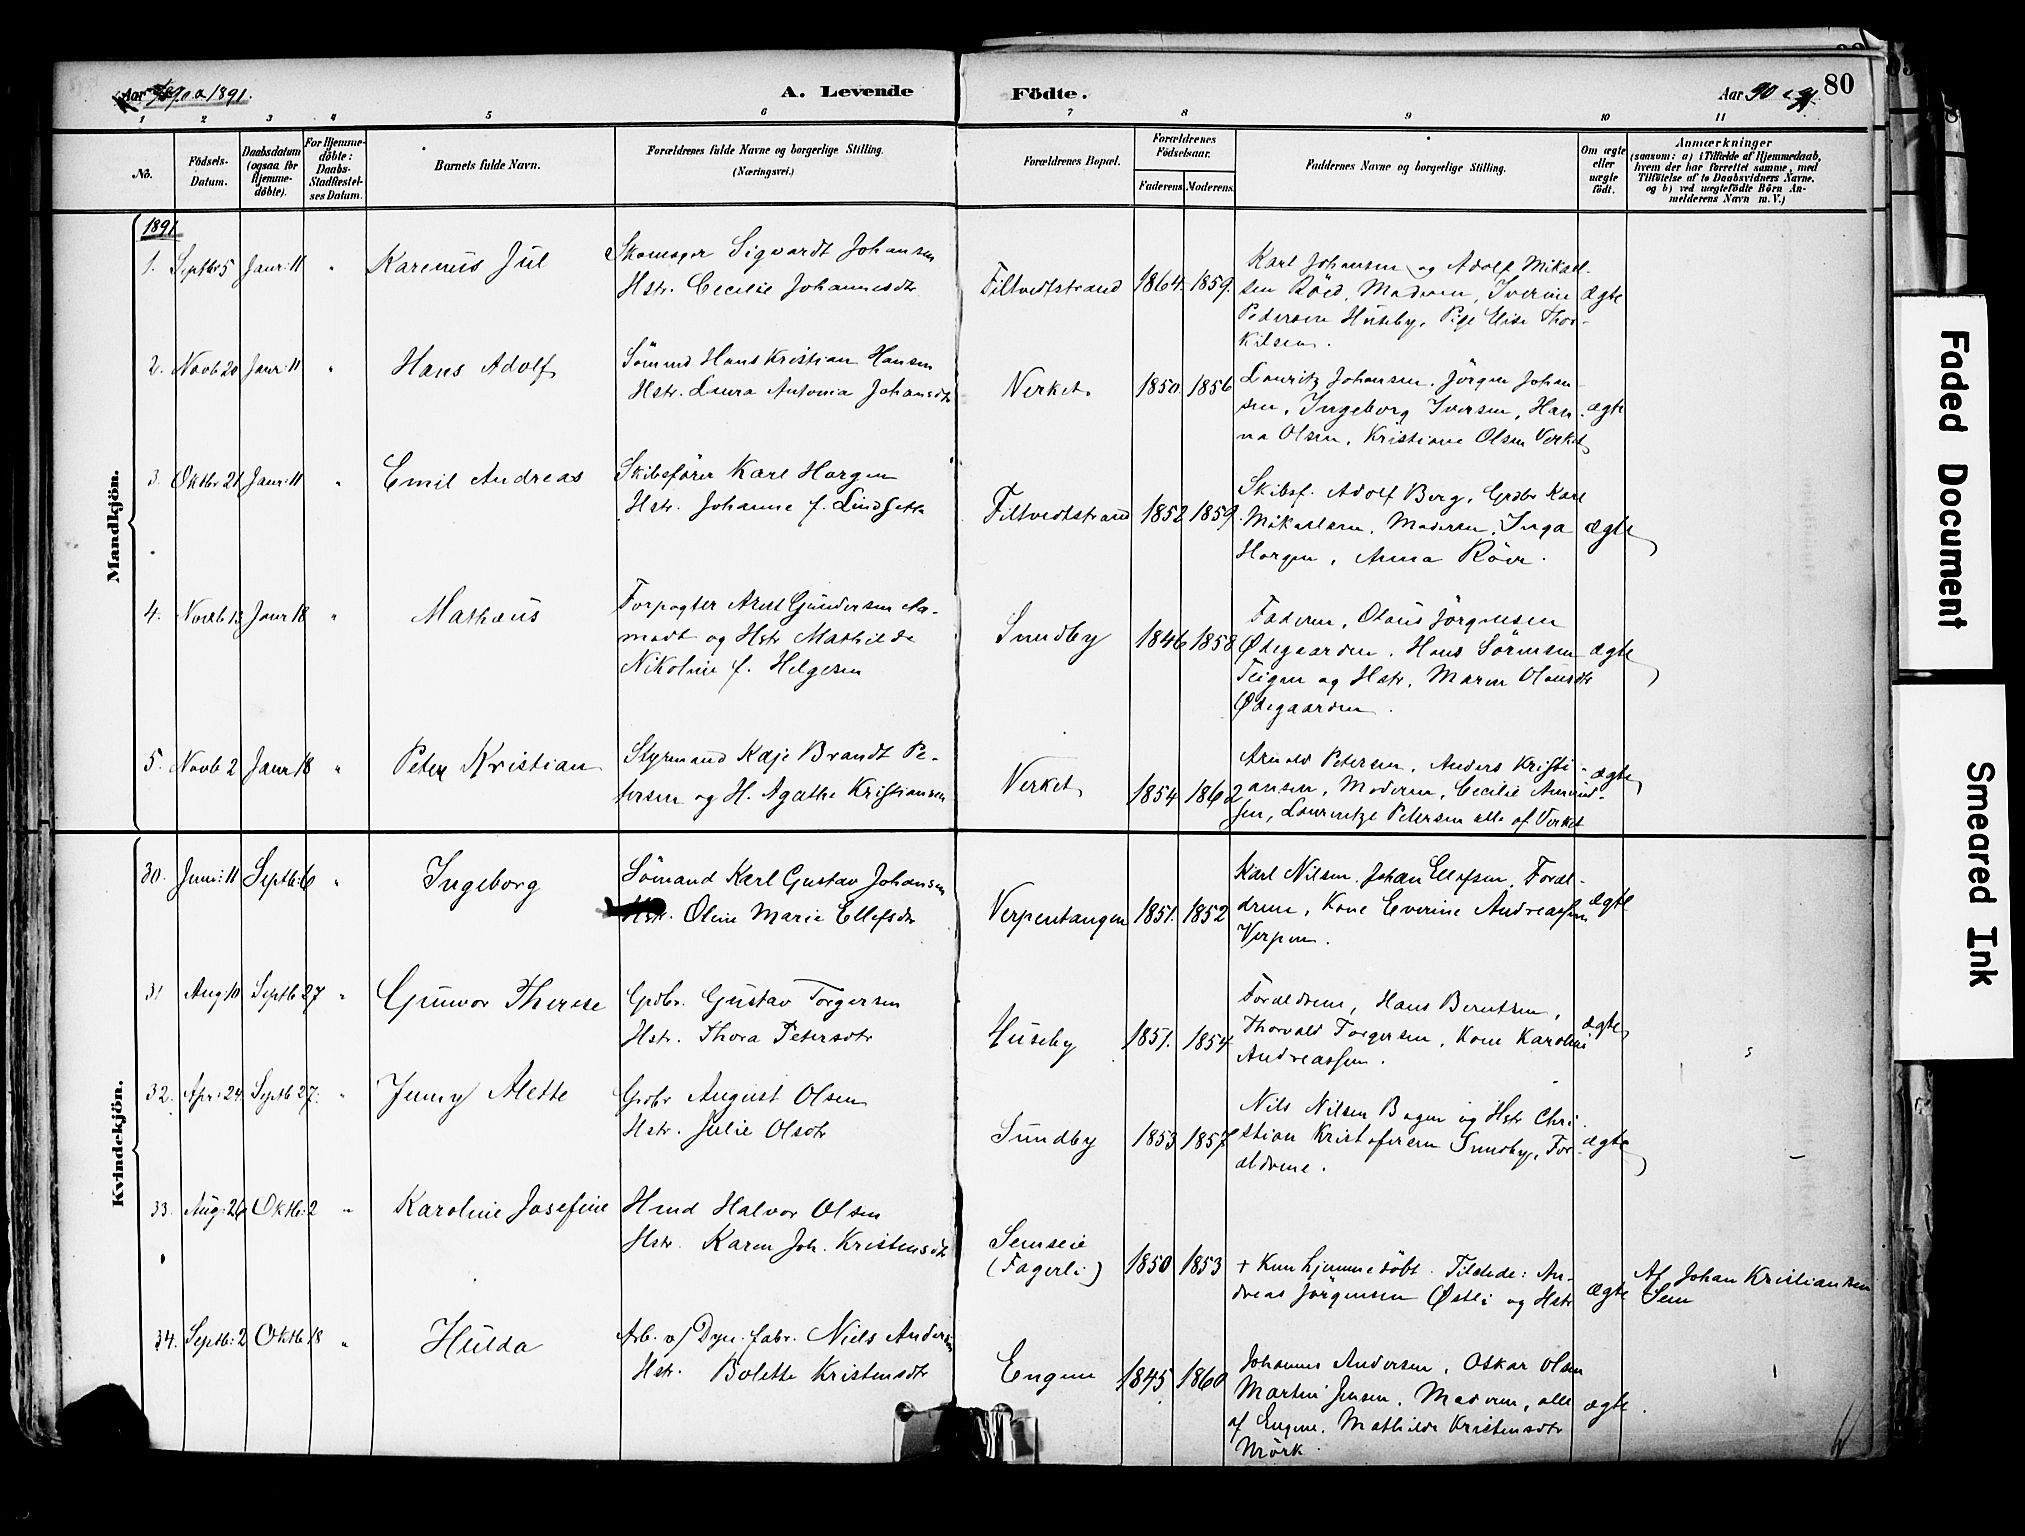 Aar 1890 a 1891.
A. Levende
Födte.
Aar 90 a 91.
80
1 2 3 4 5 6 7 8 9 10 11
No.
Födsels-Datum.
Daabsdatum (ogsaa for Hjemme-döbte).
For Hjemme-döbte: Daabs-Stadfæstel-ses Datum.
Barnets fulde Navn.
Forældrenes fulde Navne og borgerlige Stilling.
(Næringsvei.)
Forældrenes Bopæl.
Forældrenes Födselsaar.
Faderens. Moderens.
Faddernes Navne og borgerlige Stilling.
Om ægte eller uægte födt.
Anmærkninger
(saasom: a) i Tilfælde af Hjemmedaab,
hvem der har forrettet samme, med
Tilföielse af to Daabsvidners Navne.
og b) ved uægtefödte Börn An-
melderens Navn m. V.)
Mandkjön.
1891
1. Septbr 5 Janr: 11 " Karenus Jul
Skomager Sigvardt Johansen
Hstr. Cecilie Johannesdtr
Filtvedtstrand 1864. 1859.
Karl Johansen og Adolf Mikael-
sen Röed, Moderen, Iverine
Pedersen Huseby, Pige Elise Thor-
kilsen.
ægte
2. Novb 20 Janr: 11 " Hans Adolf
Sömnd Hans Kristian Hansen
Hstr. Laura Antonia Johansdtr
Verket 1850. 1856
Lauritz Johansen, Jörgen Johan-
sen, Ingeborg Iversen, Han-
na Olsen, Kristiane Olsen Verket
ægte
3. Oktbr 21 Janr: 11 " Emil Andreas
Skibsförer Karl Horgen
Hstr. Johanne f.
Filtvedtstrand 1852 1859.
Skibsf. Adolf Berg, Grdbr Karl
Mikaelsen, Moderen, Inga
Horgen, Anna
ægte
4. Novb 13 Janr 18 " Mathæus
Forpagter Axel Gundersen Aa-
modt og Hstr Mathilde
Nikoline f. Helgesen
Sundby 1846 1858
Faderen, Olaus Jörgensen
Ødegaarden, Hans Sörensen
Teigen og Hstr, Maren Olausdtr
Ødegaarden.
ægte
5. Novb 2 Janr 18 " Peter Kristian
Styrmand Kaje Brandt Pe-
tersen og H. Agathe Kristiansen
Verket 1854 1862
Arnold Petersen, Anders Kristi-
ansen, Moderen, Cecilie Amund-
sen, Laurentze Petersen alle af Verket
ægte
Kvindekjön.
30. Juni: 11 Septb: 6 " Ingeborg
Sömand Karl Gustav Johansen
Hstr. Oline Marie Ellefsdtr
Verpentangen 1851. 1852
Karl Nilsen, Johan Ellefsen, Foræl-
drene, Kone Everine Andreassen
Verpen.
ægte
31 Aug: 10 Septb 27 " Gunvor Therese
Grdbr. Gustav Torgersen
Hstr. Thora Petersdtr
Huseby 1851. 1854
Forældrene, Hans Berntsen,
Thorvald Torgersen, Kone Karoline
Andreassen.
ægte
32. Apr: 24 Septb 27. " Jenny Alette
Grdbr August Olsen
Hstr. Julie Olsdtr
Sundby 1853 1857
Nils Nilsen Bogen og Hstr Chri-
stian Kristofersen Sundby, For-
ældrene.
ægte
33. Aug: 26 Oktb: 2 " Karoline Josefine
Hmd Halvor Olsen
Hstr. Karen Joh. Kristensdtr
Semseie
(Fagerli)
1850 1853
+ Kun hjemmedöbt. Tilstede: An-
dreas Jörgensen Østli og Hstr
ægte
Af Johan Kristiansen
Sem
34. Septb: 2 Oktb 18 " Hulda
Arb. v/ Dyn. fabr. Niels Andersen
Hstr. Bolette Kristensdtr
Engene 1845 1860
Johannes Andersen, Oskar Olsen
Martin Jensen, Moderen, alle
af Engene, Mathilde Kristensdtr
Mörk.
ægte.
Faded Document
Smeared Ink